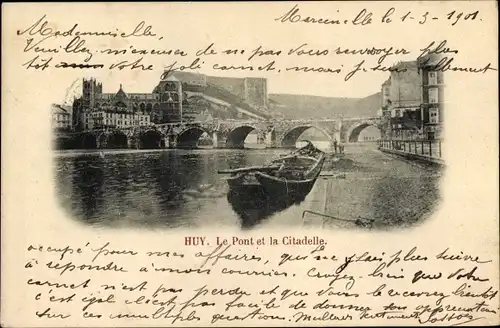 Marcinelle le 1-3-1901
Mademoiselle,
Veuillez m'excuser de ne pas vous renvoyer plus
tôt votre joli carnet, mais je suis tellement
HUY. Le Pont et la Citadelle.
occupé pour mes affaires, que je n'ai plus suivre
à répondre à mon courrier. Croyez-bien que votre
carnet n'est pas perdu et que vous le recevrez bientôt
c'est que c'est pas facile de donner son appréciation
sur ces multiples questions. Meilleurs sentiments